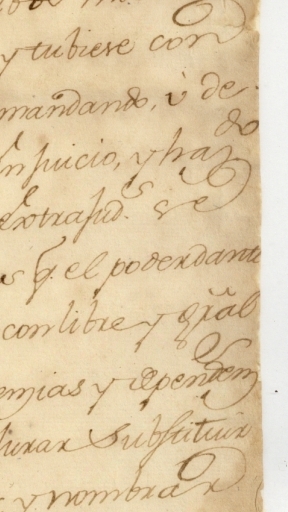 y tubiere con
mandando, ù de
En juicio, y haz.do
extrajud.s q.e
s q. el poderdante
con libre y gral
emias y dependem
jurar substituir
y nombrar